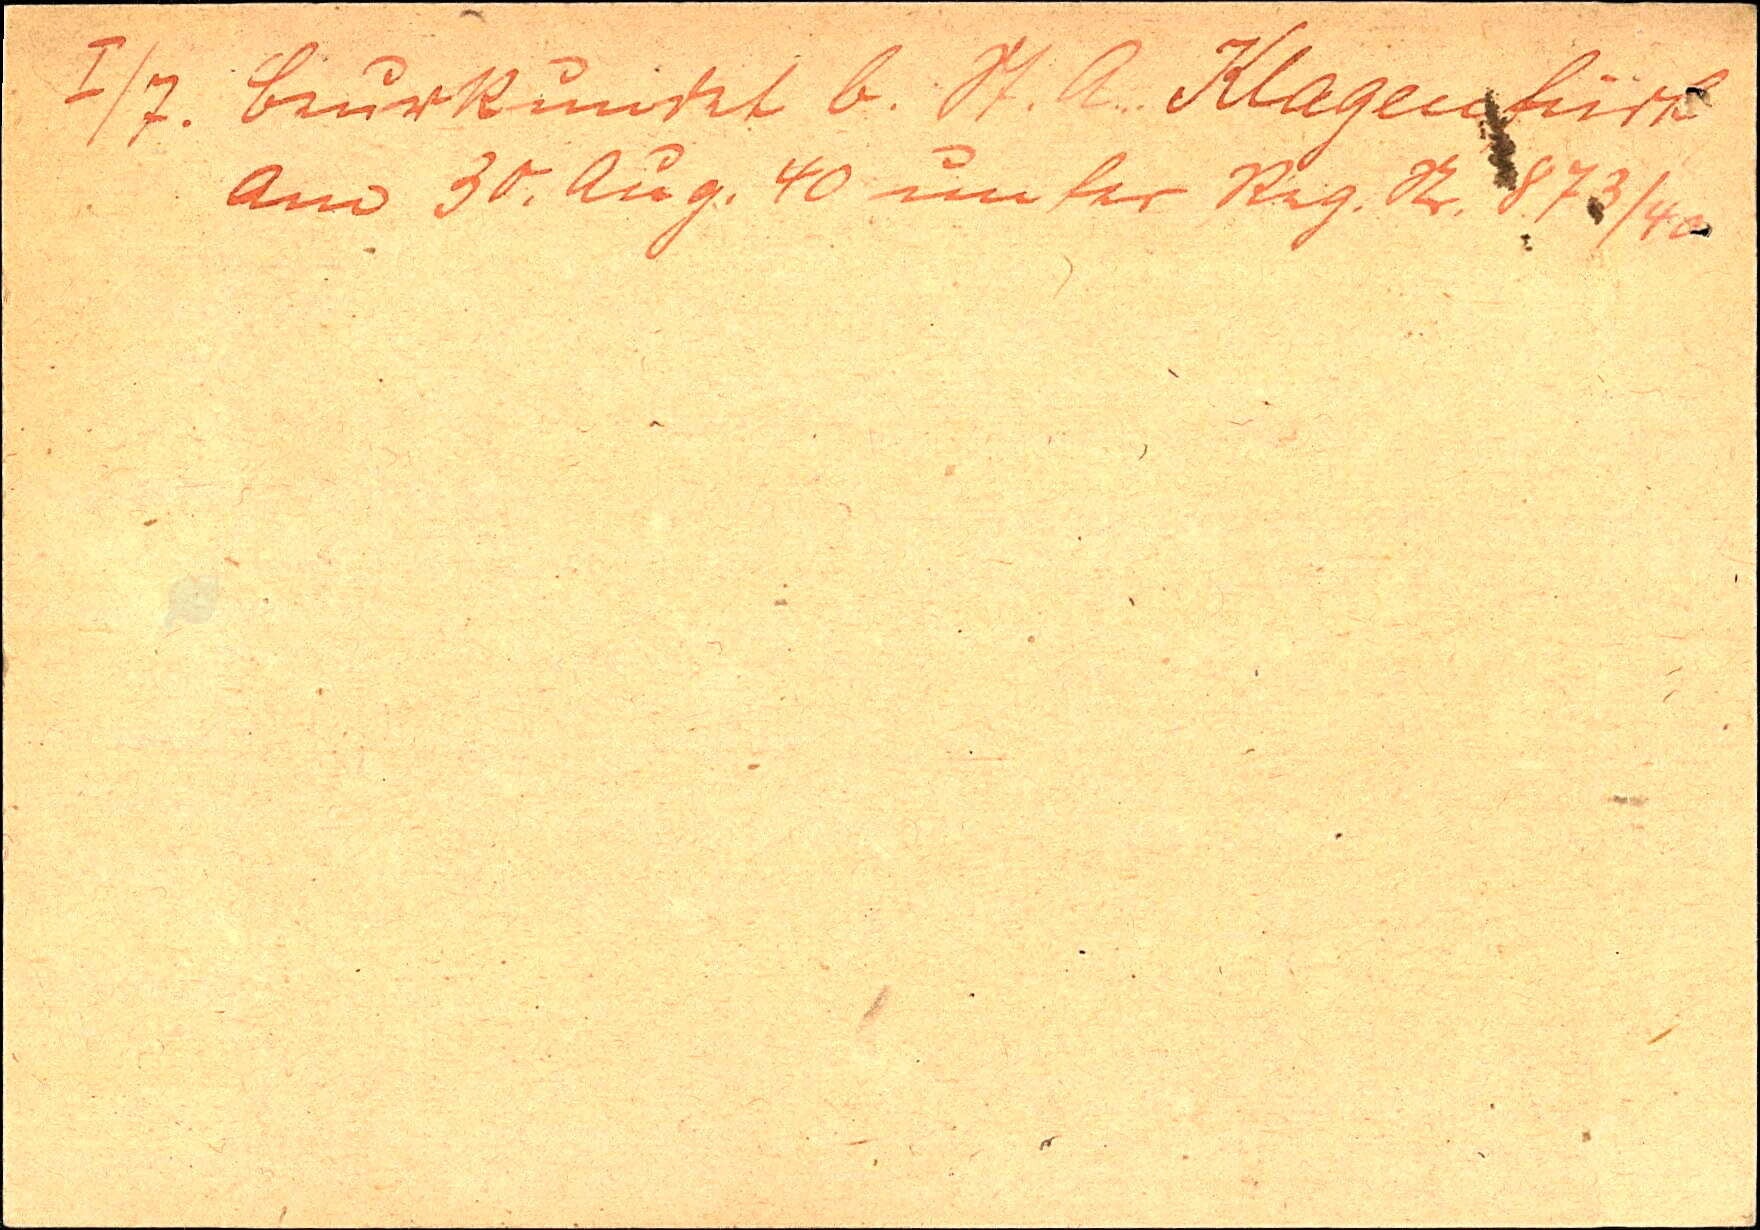 I/7. Beurkundet b. St. A. Klagenfurt
am 30. Aug. 40 unter Reg. Nr. 873/40